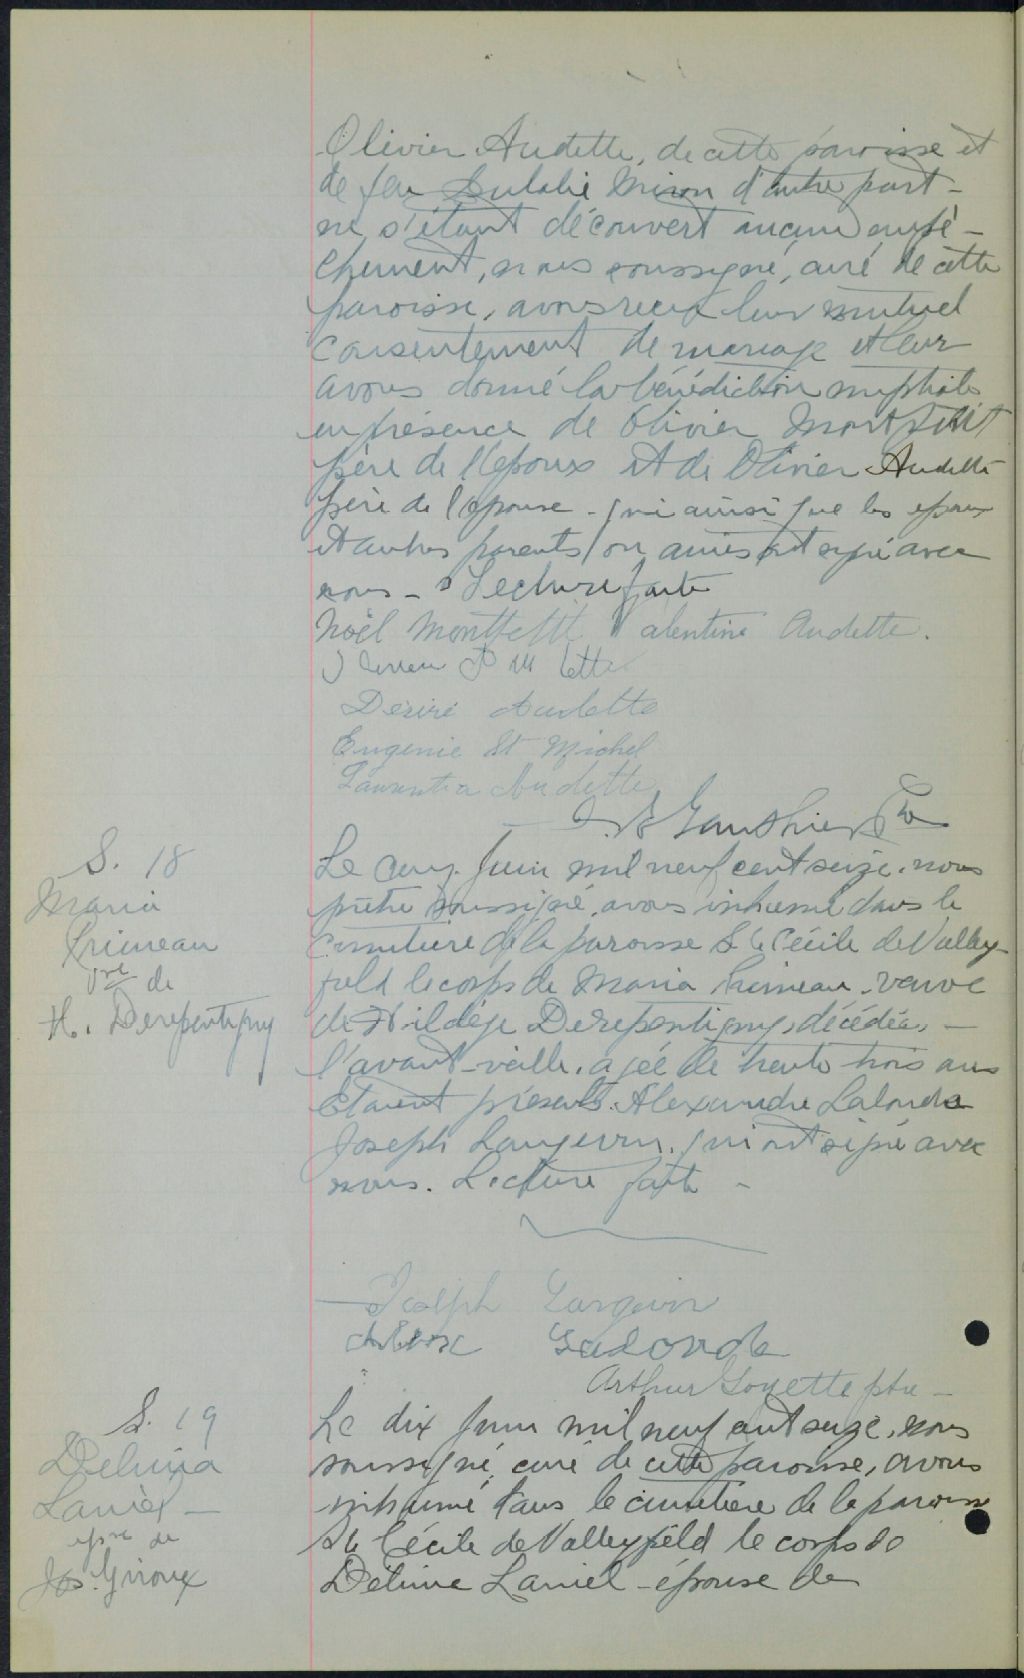 Olivier Audette, de cette paroisse et
de feu Eulalie Miron d'autre part -
ne s'étant découvert aucun empê-
chement, nous soussigné, curé de cette
paroisse, avons reçu leur mutuel
consentement de mariage et leur
avons donné la bénédiction nuptiale
en présence de Olivier Montpetit
père de l'époux et de Olivier Audette
père de l'épouse - qui ainsi que les époux
et autres parents ou amis ont signé avec
nous - Lecture faite
Noël Montpetit Valentine Audette.
Désiré Audette
Eugenie St Michel
Laurentia Audette
Gauthier Ptre
S. 18
Maria
Primeau
Vve de
H. Derepentigny
Le cinq Juin mil neuf cent seize. nous
prêtre soussigné, avons inhumé dans le
cimetière de la paroisse Ste Cécile de Valley-
field le corps de Maria Primeau. veuve
de Hildège Derepentigny, décédée, -
l'avant-veille. agée de trente trois ans
Etaient présents. Alexandre Lalonde
Joseph Langevin. qui ont signé avec
nous. Lecture faite -
Joseph Langevin
Alex Lalonde
Arthur Goyette ptre -
S. 19
Delima
Laniel -
épse de
Jos. Giroux
Le dix Juin mil neuf cent seize, nous
soussigné, curé de cette paroisse, avons
inhumé dans le cimetière de la paroisse
Ste Cécile de Valleyfield le corps de
Délima Laniel - épouse de